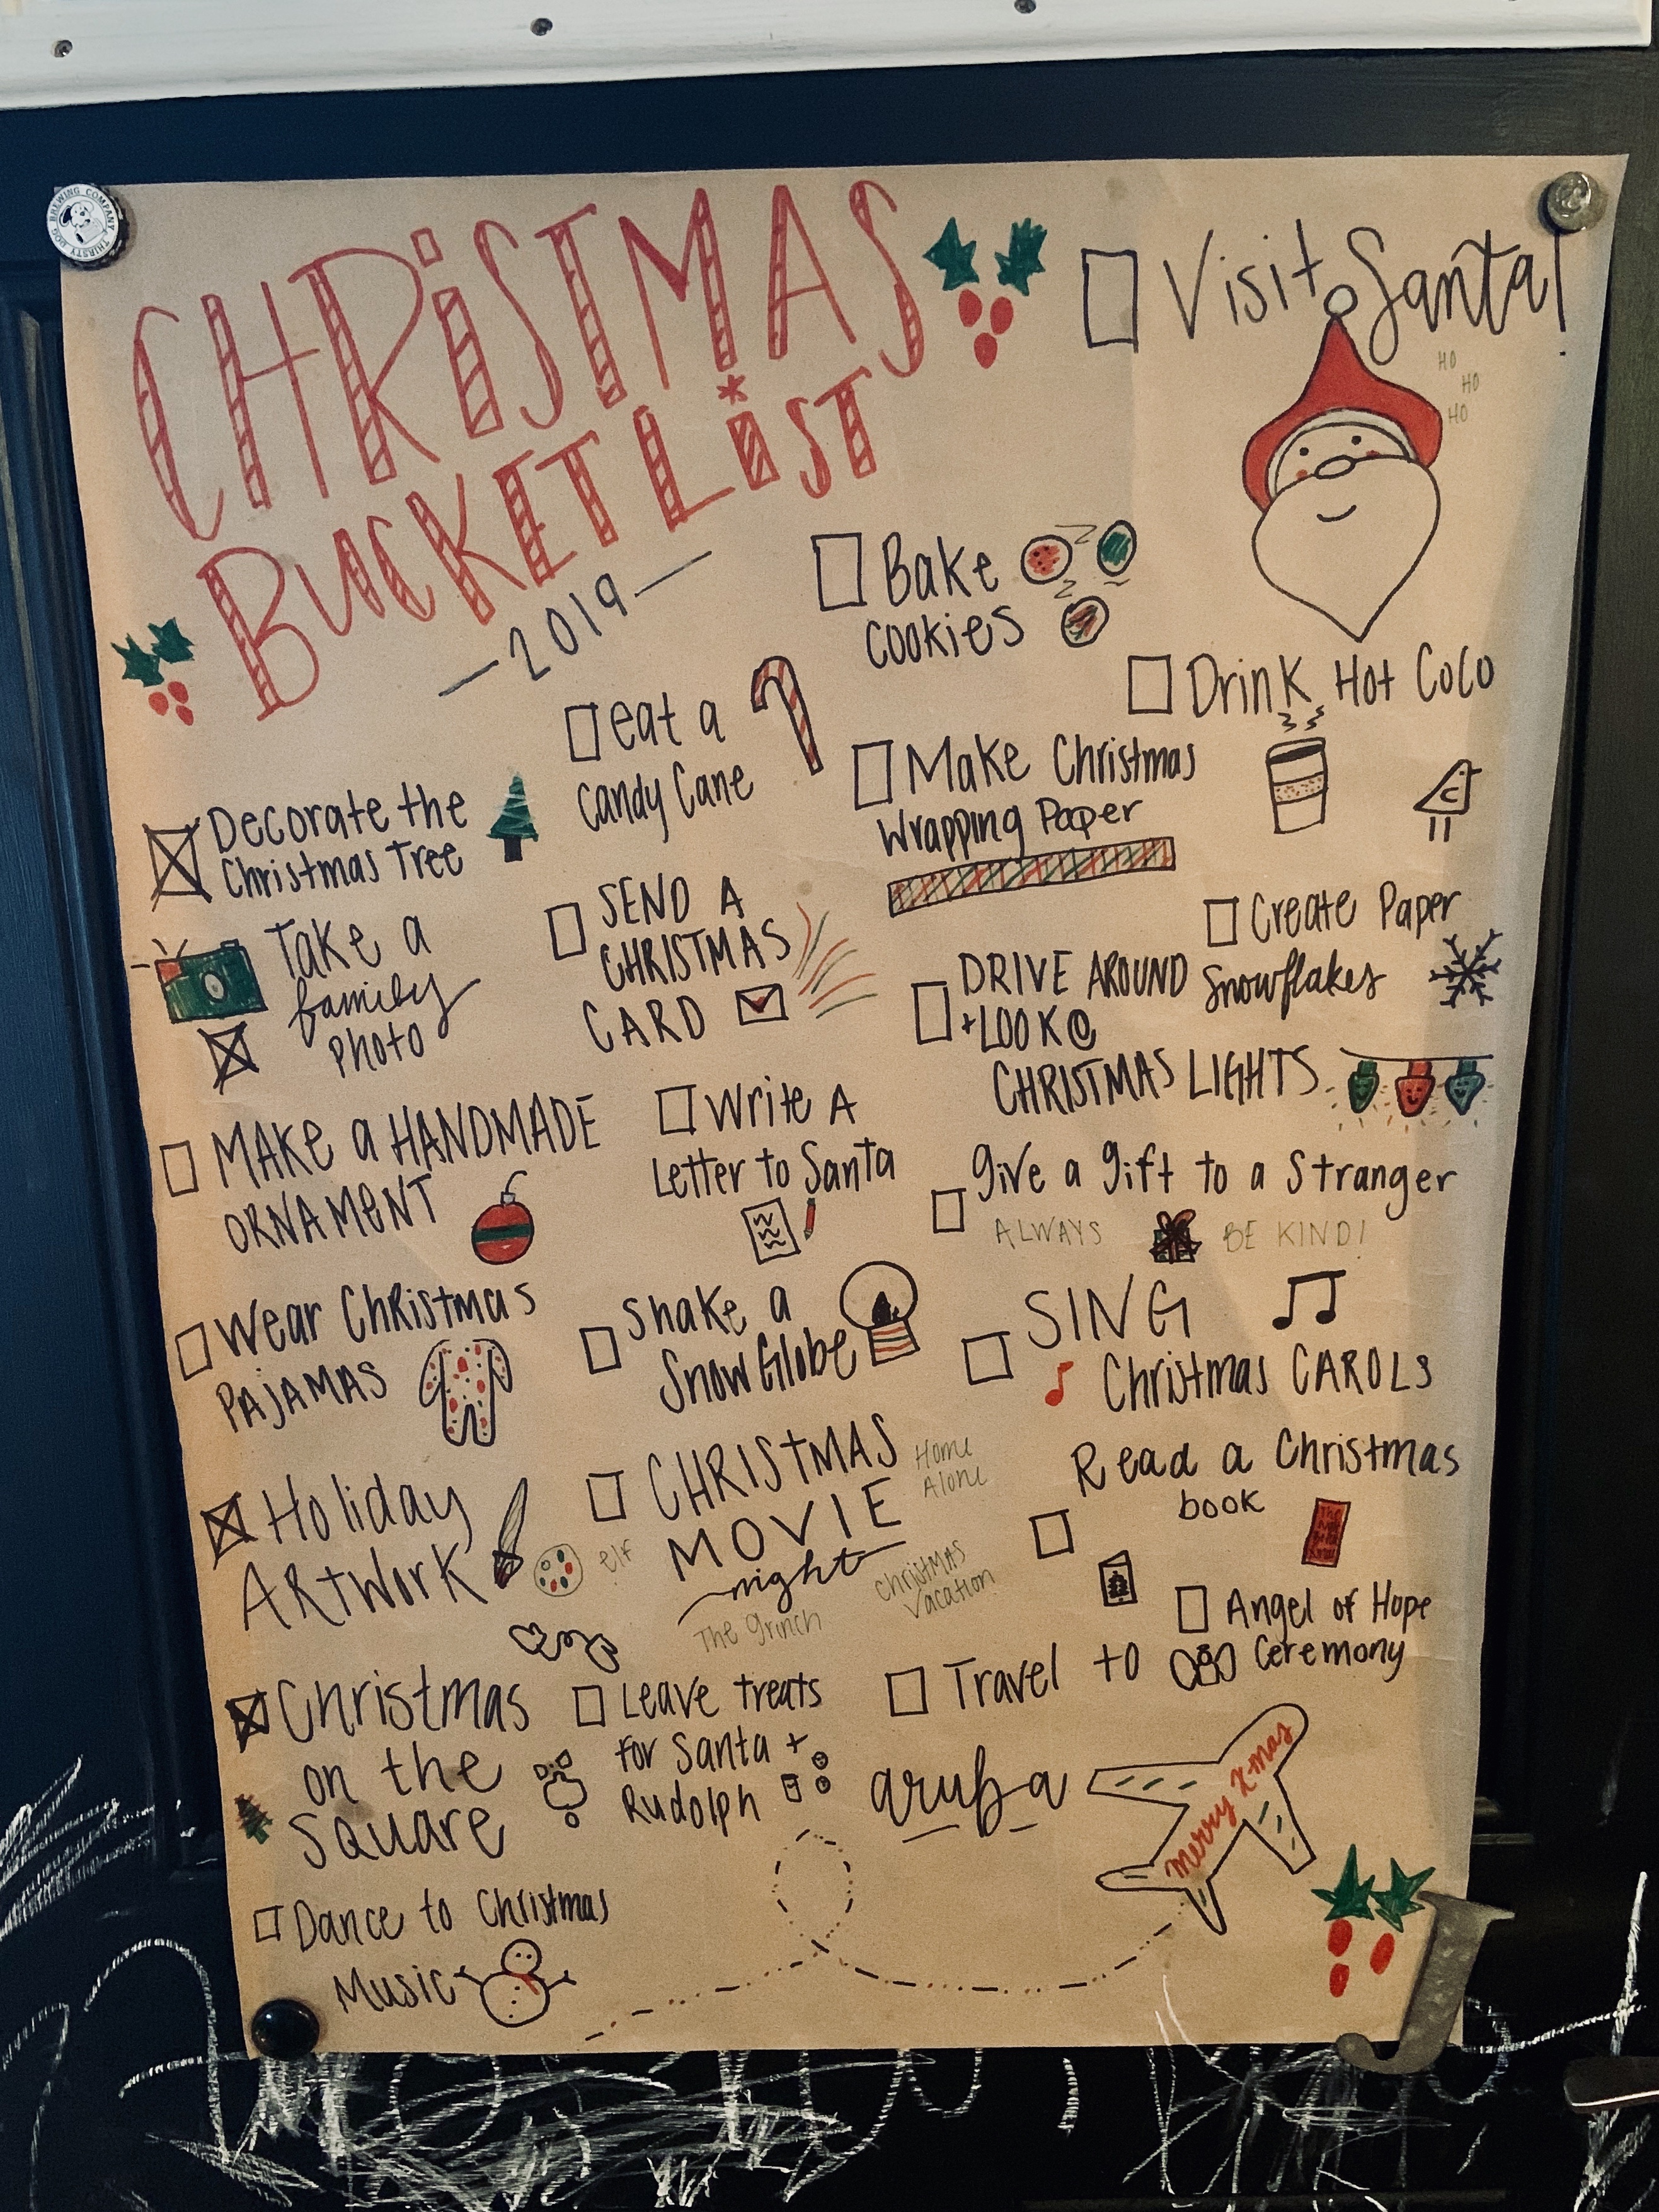 BREWING COMPANY THIRSTY DOG
CHRiSTMAS
BUCKET LiST
—2019—
Visit Santa!
HO
HO
HO
Bake
Cookies
Drink Hot Coco
C
eat a
Candy Cane
Make Christmas
Wrapping Paper
Decorate the
Christmas Tree
Take a
family
photo
SEND A
CHRISTMAS
CARD
Create Paper
Snowflakes
DRIVE AROUND
+LOOK@
CHRISTMAS LIGHTS
MAKe a HANDMADE
ORNAMeNT
Write A
Letter to Santa
give a gift to a Stranger
ALWAYS BE KIND!
Wear Christmas
PAJAMAS
Shake a
Snow Globe
SING
Christmas CAROLS
Holiday
ARtwork
CHRIStMAS
MOVIE
night
Home
Alone
elf
Christmas
Vacation
The Grinch
Read a Christmas
book
Angel of Hope
Ceremony
Christmas
on the
Square
Leave treats
for Santa +
Rudolph
Travel to
aruba
Merry X-mas
Dance to Christmas
Music
J